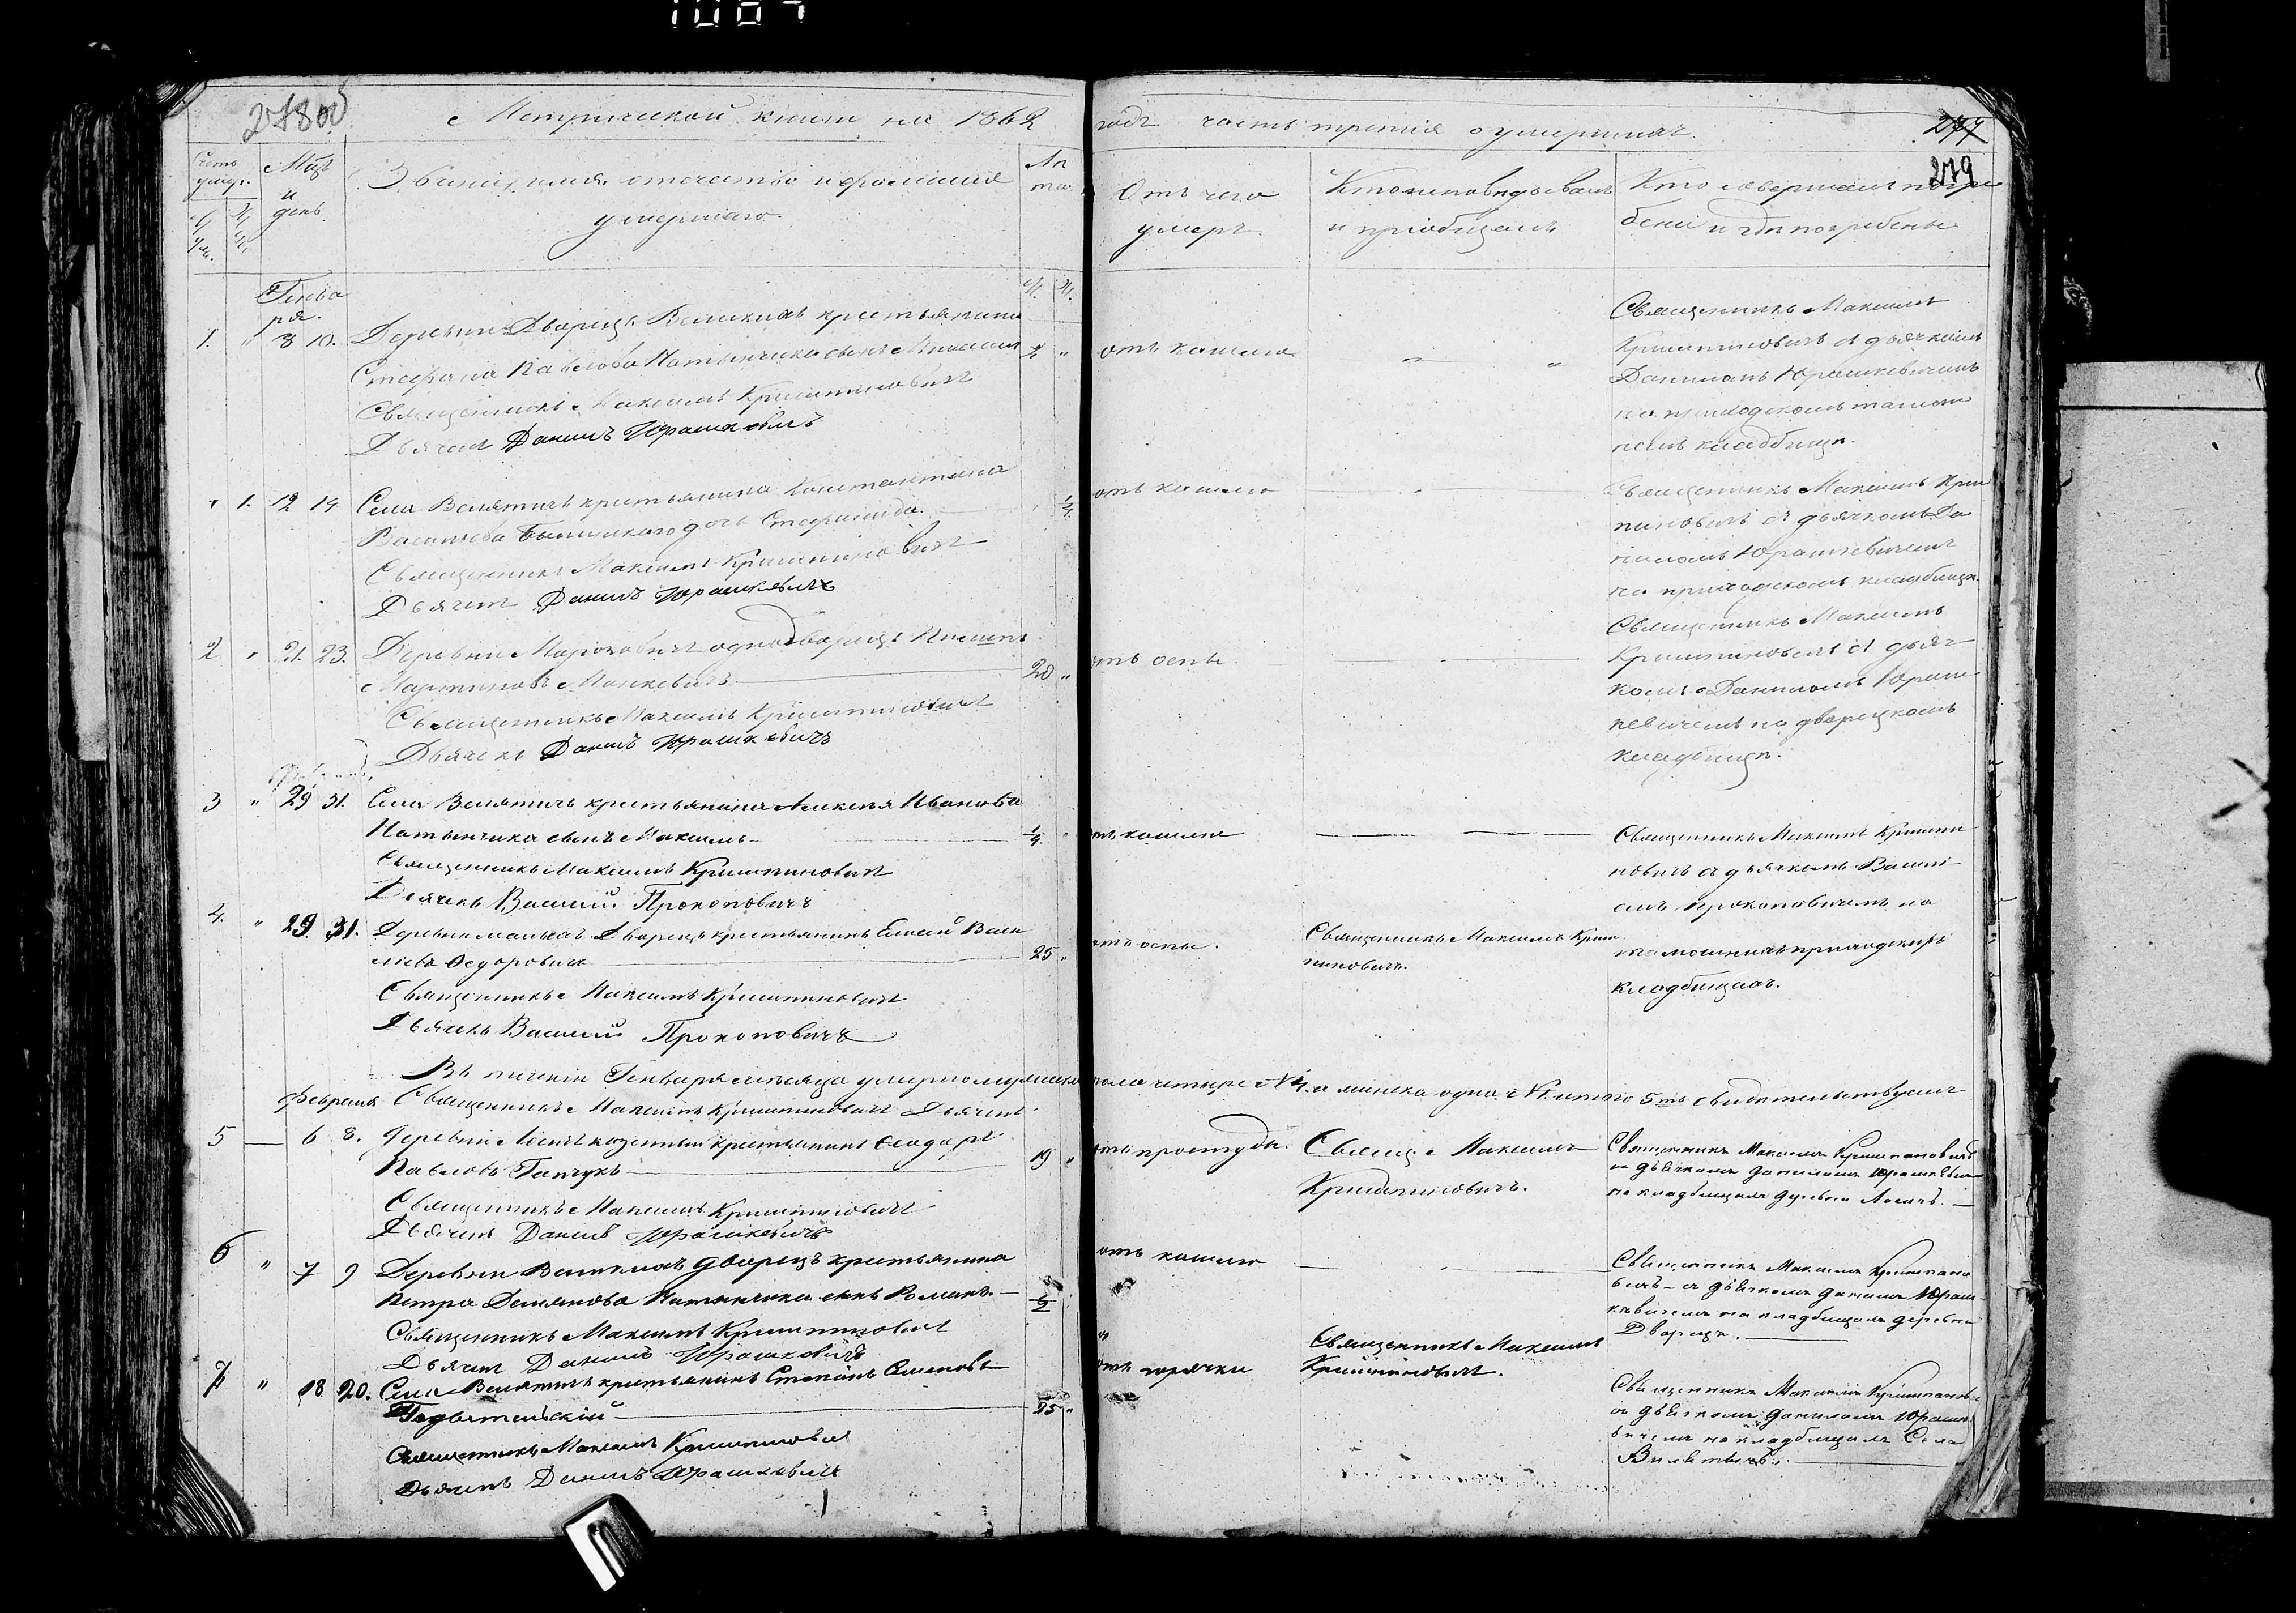 1087
278 об
Метрической книги на 1862 годъ часть третія о умершихъ.
277
279
Счетъ умер.
Мцъ и день.
Званіе, имя, отечество и фамилія умершаго.
Лѣта
Отъ чего умеръ.
Кто исповѣдывалъ и пріобщалъ
Кто совершалъ погребеніе и гдѣ погребены
Генваря.
1. " 8 10. Деревни Дворецъ Великихъ крестьянина
Стефана Павлова Потынчика сынъ
Священникъ Максимъ Криштиновичъ
Дьячекъ Данилъ Юрашкевичъ
отъ кашлю
Священникъ Максимъ
Криштиновичъ съ дьячкомъ
Даниломъ Юрашкевичемъ
на приходскомъ
кладбищѣ.
" 1. 12 14 Села Велятичъ крестьянина Константина
Васильева дочь Стефанида.
Священникъ Максимъ Криштиновичъ
Дьячекъ Данилъ Юрашкевичъ
отъ кашлю
Священникъ Максимъ Кришти
новичъ съ дьячкомъ Да
ниломъ Юрашкевичемъ
на приходскомъ кладбищѣ.
2 " 21. 23. Деревни однодворецъ
Мартиновъ Манкевичъ 20 "
Священникъ Максимъ Криштиновичъ
Дьячекъ Данилъ Юрашкевичъ
отъ оспы
Священникъ Максимъ
Криштиновичъ съ дьяч
комъ Даниломъ Юраш
кевичемъ на дворецкомъ
кладбищѣ.
3 " 29 31. Села Велятичъ крестьянина Алексѣя Иванова
Потынчика сынъ Максимъ 1/4 "
Священникъ Максимъ Криштиновичъ
Дьячекъ Василій Прокоповичъ
отъ кашлю
Священникъ Максимъ Кришти
новичъ съ дьячкомъ Васил
емъ Прокоповичемъ на
4. " 29. 31. Деревни малыхъ Дворецъ крестьянинъ Елисей Васи
льевъ Федоровичъ 25 "
Священникъ Максимъ Криштиновичъ
Дьячекъ Василій Прокоповичъ
отъ оспы.
Священникъ Максимъ Кришти
новичъ.
тамошнихъ приходскихъ
кладбищахъ.
Въ теченіи Генваря мѣсяца умерло мужеска пола четыре №4. а женска одна №1. итого 5ть свидѣтельствуемъ
Священникъ Максимъ Криштиновичъ Дьячекъ
Февраля
5 — 6 8. Деревни казенный крестьянинъ Феодоръ
Павловъ Гапчукъ 19 "
Священникъ Максимъ Криштиновичъ
Дьячекъ Данилъ Юрашкевичъ
отъ простуды.
Свящ. Максимъ
Криштиновичъ.
Священникъ Максимъ Криштиновичъ
съ дьячкомъ Даниломъ Юрашкевичемъ
на кладбищахъ деревни
6 " 7 9 Деревни Великихъ Дворецъ крестьянина
Петра Демянова Потынчика сынъ Романъ. 1/2
Священникъ Максимъ Криштиновичъ
Дьячекъ Данилъ Юрашкевичъ
отъ кашлю
Священникъ Максимъ Криштино
вичъ съ дьячкомъ Данилом Юраш
кевичемъ на кладбищахъ деревни
Дворецъ.
7 " 18 20. Села Велятичъ крестьянинъ Степанъ Семеновъ
25 "
Священникъ Максимъ Криштиновичъ
Дьячекъ Данилъ Юрашкевичъ
отъ горячки
Священникъ Максимъ
Криштиновичъ.
Священникъ Максимъ Криштинович
съ дьячкомъ Даниломъ Юрашке
вичемъ на кладбищахъ Села
Велятичъ.